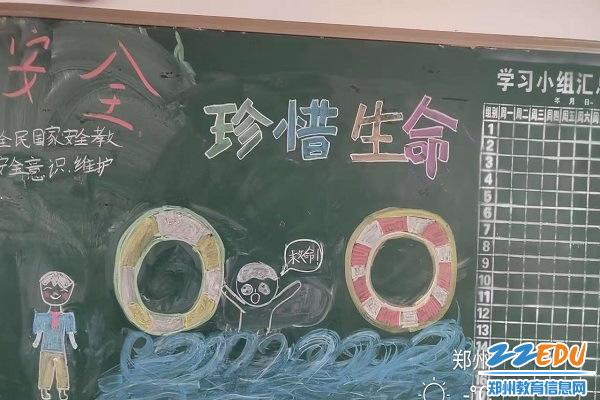 安全
珍惜生命
全民国家安全教
安全意识.维护
救命!
学习小组汇总
年 月 日
组别 周一 周二 周三 周四 周五 周六
1
2
3
4
5
6
7
8
9
10
11
12
13
14
郑州
22EDU
郑州教育信息网